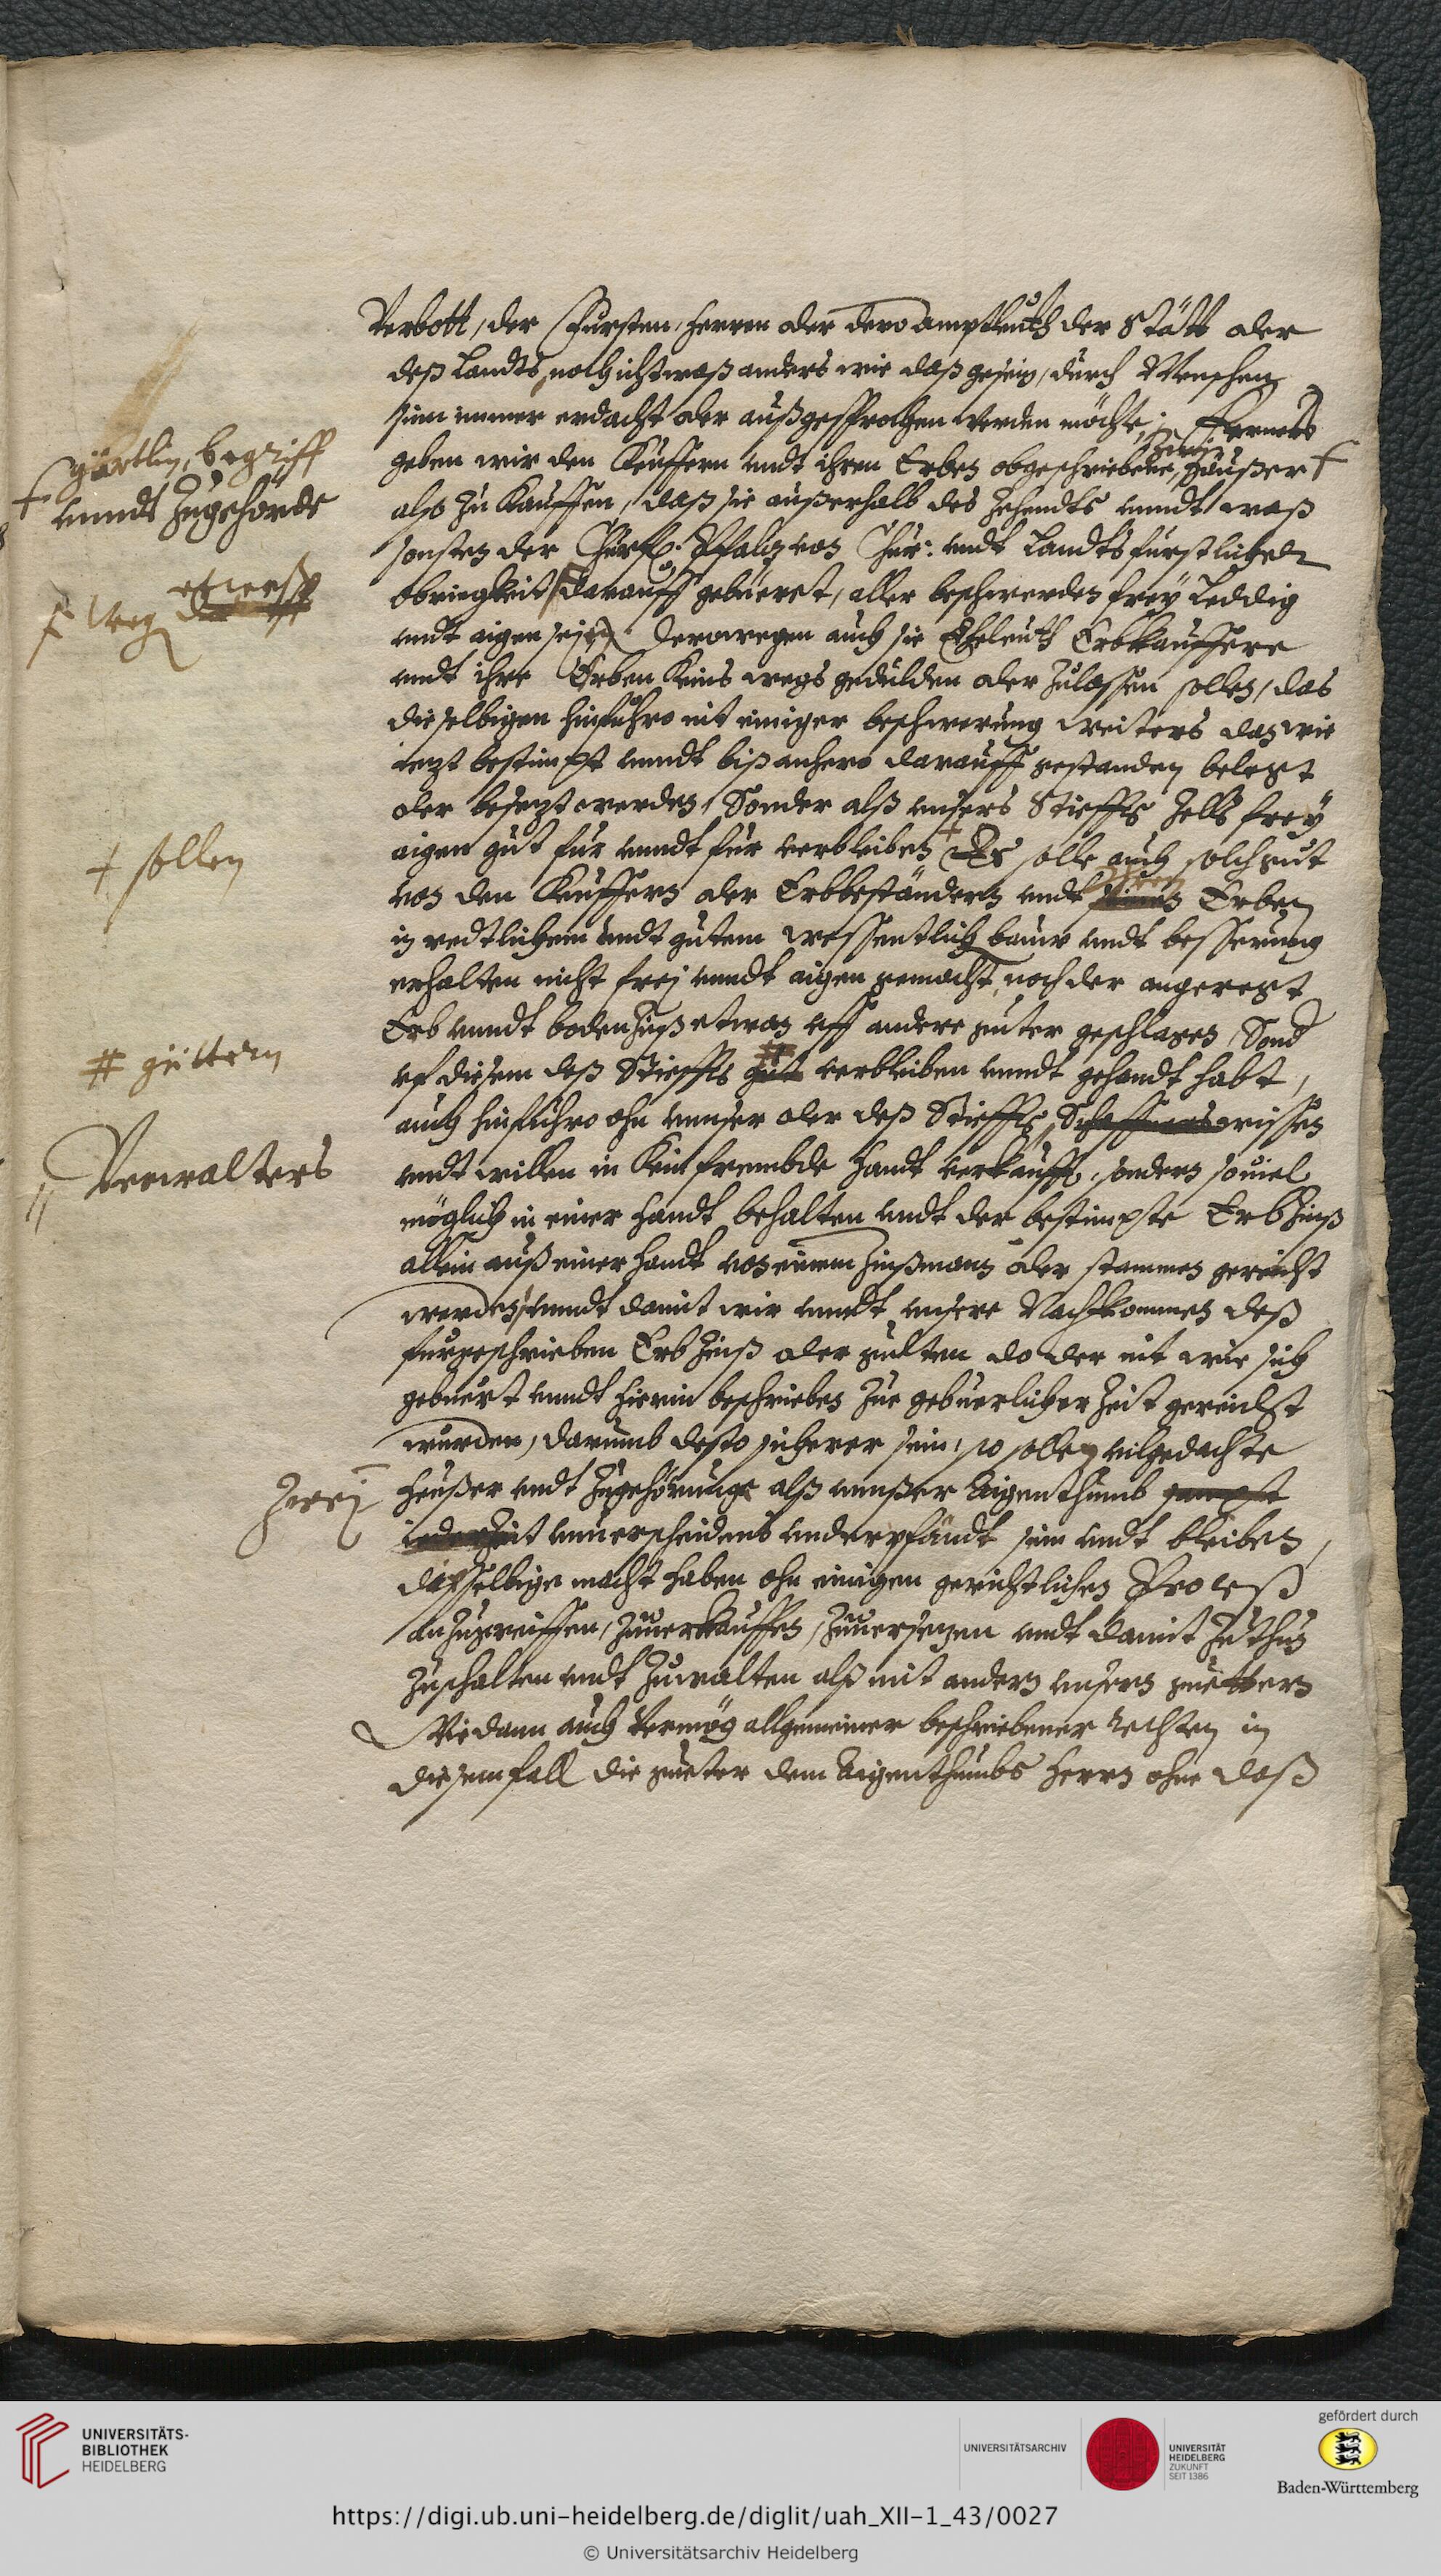 Verbott, der Fursten, Herren oder dero Amptleuth der Stätt oder
deß Landts, noch ichtwaß anders wie daß gesein, durch Menschen
sinn immer erdacht oder außgesprochen werden möchte, Ferners
geben wir den Keuffern undt ihren Erben obgeschriebene, zwei Häußer +
+ gärtlin, begriff
unndt Zugehörde
also zu Kauffen, daß sie außerhalb des Zehendts unndt waß
sonsten der Churfl. Pfaltz von Chur: undt Landtsfurstlicher
Obrigkeit darauff gebüeret, aller beschwerden frey Leddig
undt aigen seien. Derowegen auch sie Eheleuth Erbkauffere
undt ihre Erben Keins wegs gedulden oder Zulassen sollen, das
dieselbigen hinfuhro mit einiger beschwerung weiters dan wie
ietzt bestimpt unndt biß anhero darauff gestanden belegt
oder besetzt werden, Sonder alß unsers Stieffts Zells frey
aigen gut fur unndt fur verbleiben + Es solle auch solch gut
+ sollen
von den Keuffern oder Erbbeständern undt Erben
in redtlichem undt gutem wessentlich bauw undt besserung
erhalten nicht frej unndt aigen gemacht, noch der angeregt
Erb unndt bodenZinß etwan uff andere guter geschlagen Sond
uf diesem deß Stieffts gut verbleiben unndt gehandt habt,
# güttern
auch hinfuhro ohn unnser oder deß Stieffts, Schaffners wissen
// Verwalters
undt willen in Kein frembde Handt verkaufft, sondern souiel
möglich in einer Handt behalten undt der bestimpte ErbZinß
allein auß einer Handt von einem Zinßmann oder stammen gereicht
werden, unndt damit wir unndt unsere Nachkommen deß
furgeschrieben ErbZinß oder gulten do der nit wie sich
gebuert unndt hierin beschrieben Zue gebuerlicher Zeit gereicht
wurden, darumb desto sicherer sein, so sollen uilgedachte
zwej Heußer undt Zugehörung alß unnßer Aigenthumb
iederZeit unuerscheidens underpfandt sein undt bleiben,
dieselbige macht haben ohn einigen gerichtlichen Proceß
anZugreiffen, Zuuerkauffen, Zuuersetzen undt damit Zuthun
Zuschalten undt Zuwalten alß mit andern unsern guettern
Wie dann auch Vermög allgemeiner beschriebener Rechten in
diesem fall die gueter dem Aigenthumbs Herrn ohne daß
UNIVERSITÄTS-
BIBLIOTHEK
HEIDELBERG
UNIVERSITÄTSARCHIV
UNIVERSITÄT
HEIDELBERG
ZUKUNFT
SEIT 1386
gefördert durch
Baden-Württemberg
https://digi.ub.uni-heidelberg.de/diglit/uah_XII-1_43/0027
© Universitätsarchiv Heidelberg